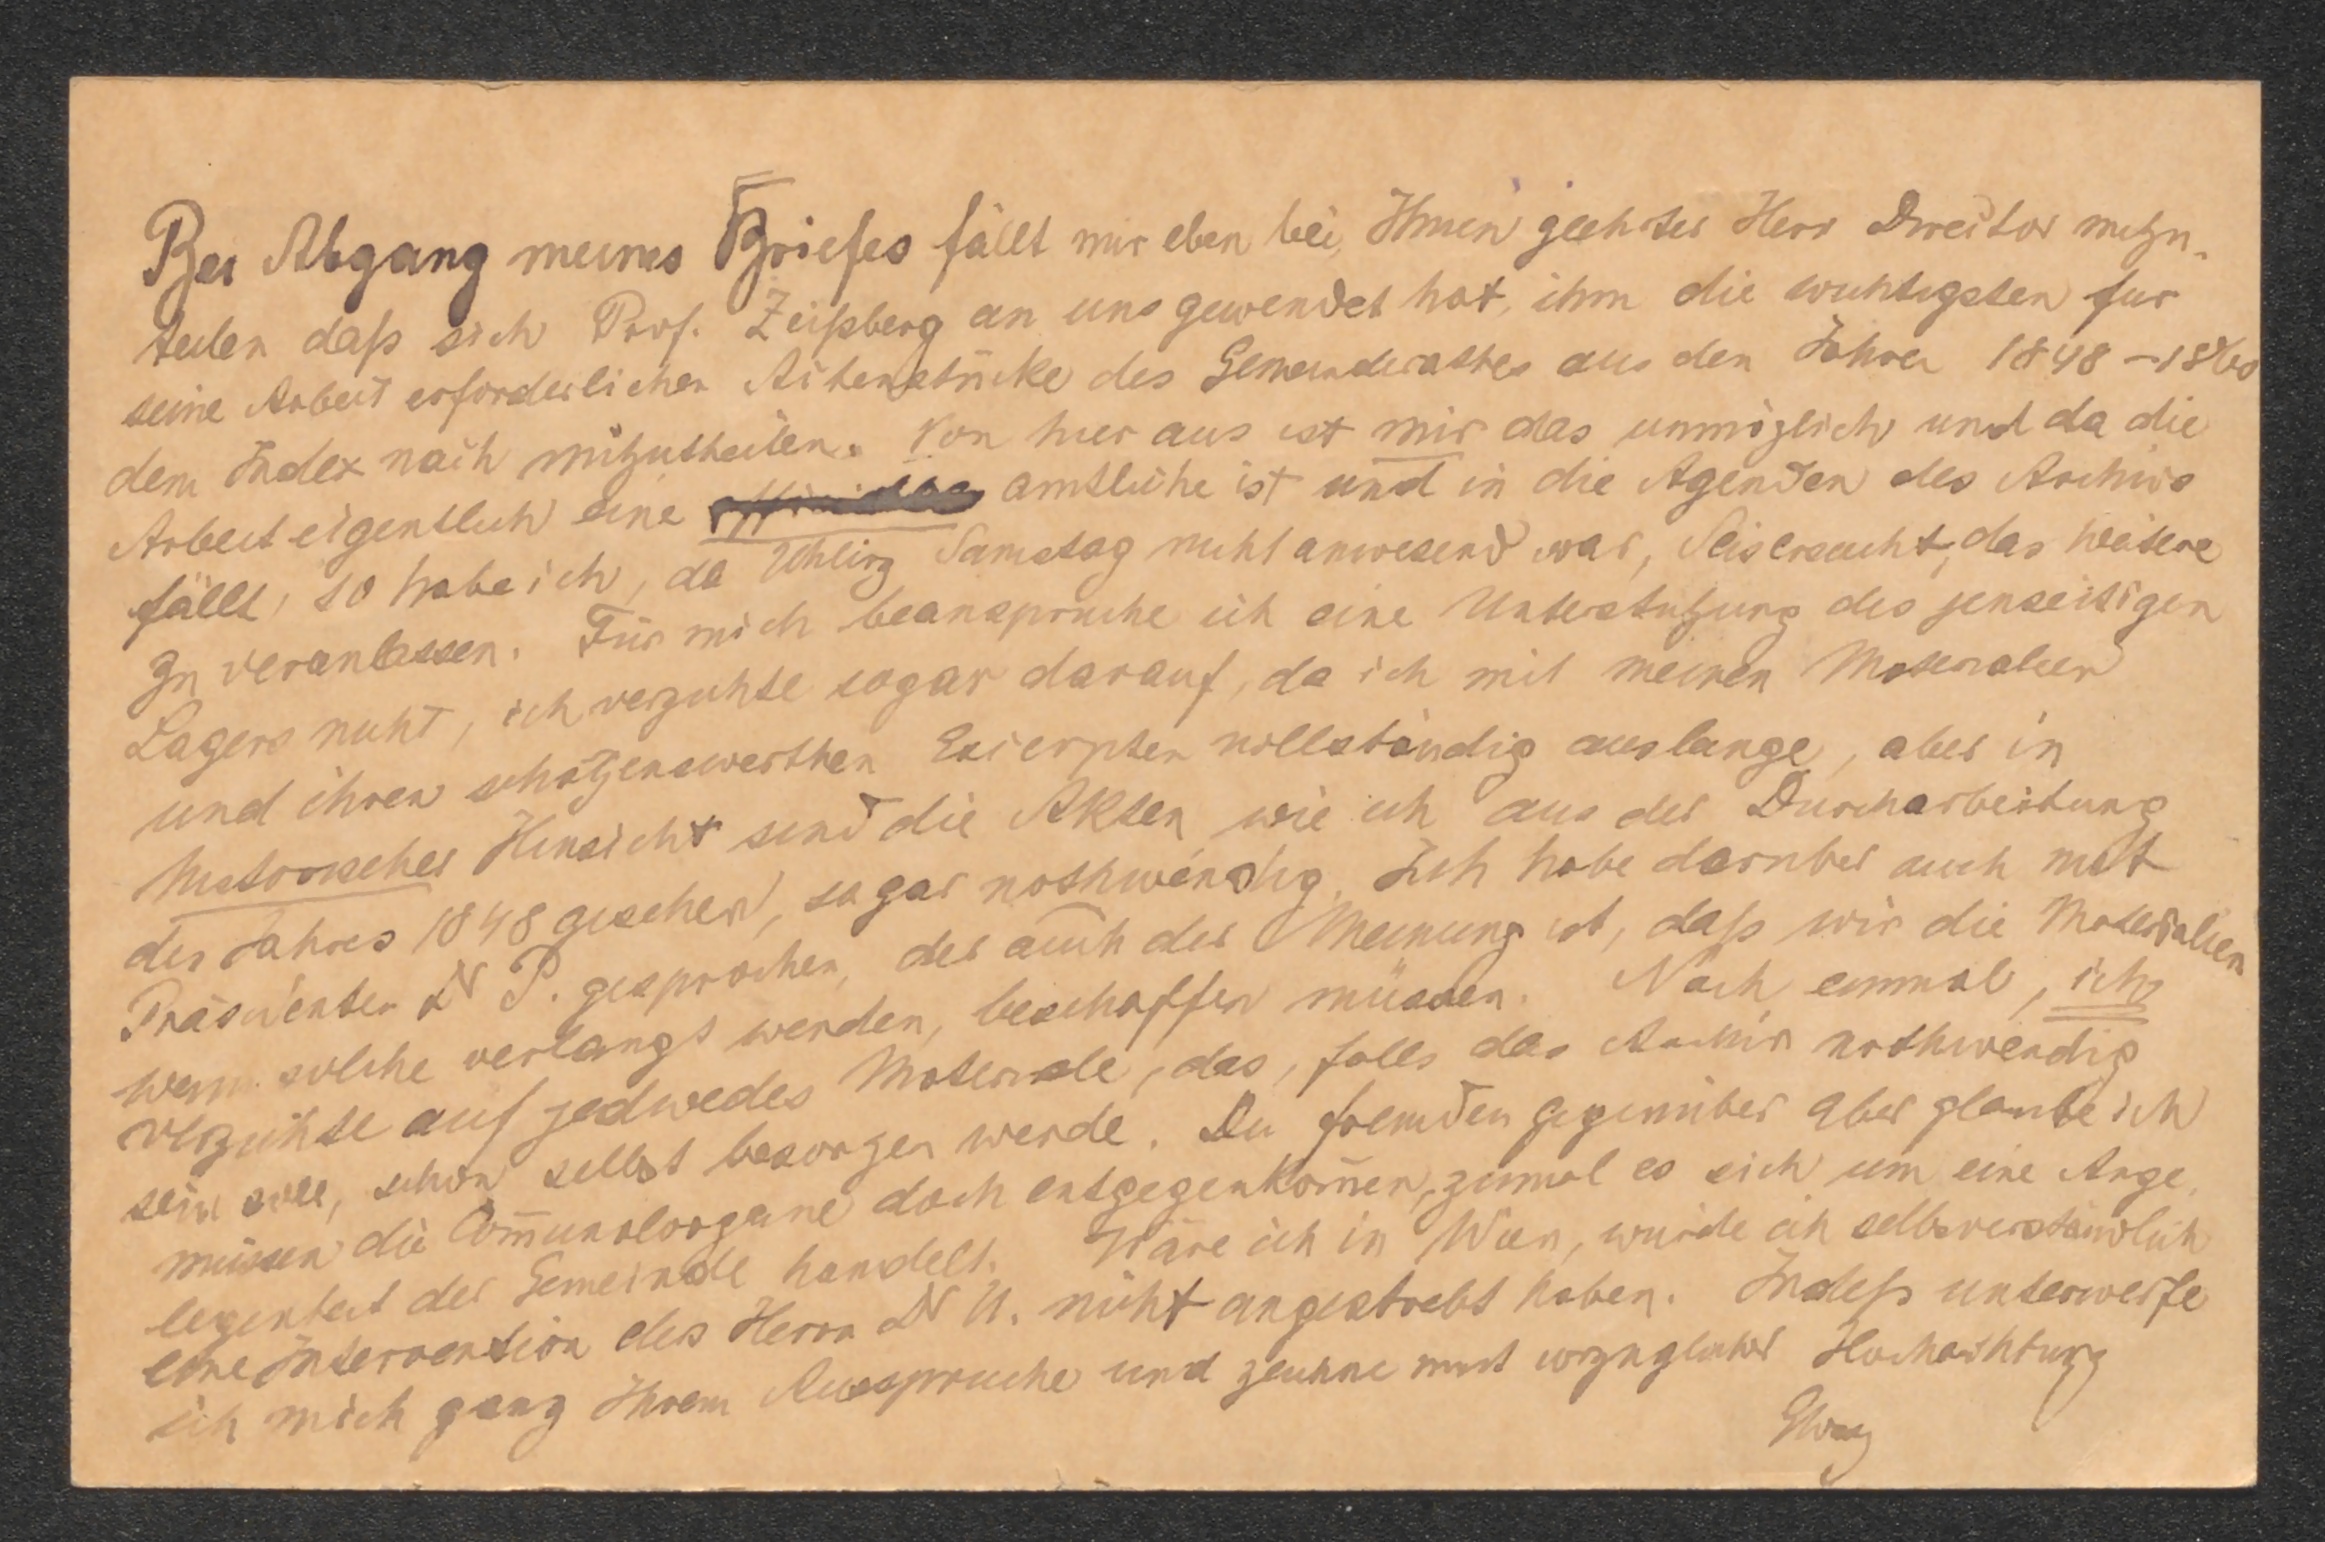 Bei Abgang meines Briefes fällt mir eben bei, Ihnen geehrter Herr Director mitzu-
teilen daß sich Prof. Zeißberg an uns gewendet hat, ihm die wichtigsten für
seine Arbeit erforderlichen Actenstücke des Gemeinderathes aus den Jahren 1848–1860
dem Index nach mitzutheilen. Von hier aus ist mir das unmöglich und da die
Arbeit eigentlich eine amtliche ist und in die Agenden des Archivs
fällt, so habe ich, da Uhlirz Samstag nicht anwesend war, ersucht, das weitere
zu veranlassen. Für mich beanspruche ich eine Unterstützung des jenseitigen
Lagers nicht, ich verzichte sogar darauf, da ich mit meinen Materialien
und ihren schätzenswerthen Excerpten vollständig auslange, aber in
historischer Hinsicht sind die Akten wie ich aus der Durcharbeitung
des Jahres 1848 gesehen, sogar nothwendig. Ich habe darüber auch mit
Präsidenten Dr P. gesprochen, der auch der Meinung ist, daß wir die Materialien
wenn solche verlangt werden, beschaffen müssen. Noch einmal, ich
verzichte auf jedwedes Materiale, das, falls das Archiv nothwendig
sein soll, schon selbst besorgen werde. Du fremden gegenüber aber glaube ich
müssen die Com̅unalorgane doch entgegenkom̅en, zumal es sich um eine Ange-
legenheit der Gemeinde handelt. Wäre ich in Wien, würde ich selbsverständlich
eine Intervention des Herrn Dr U. nicht angestrebt haben. Indeß unterwerfe
ich mich ganz Ihrem Ausspruche und zeichne mit vorzüglicher Hochachtung